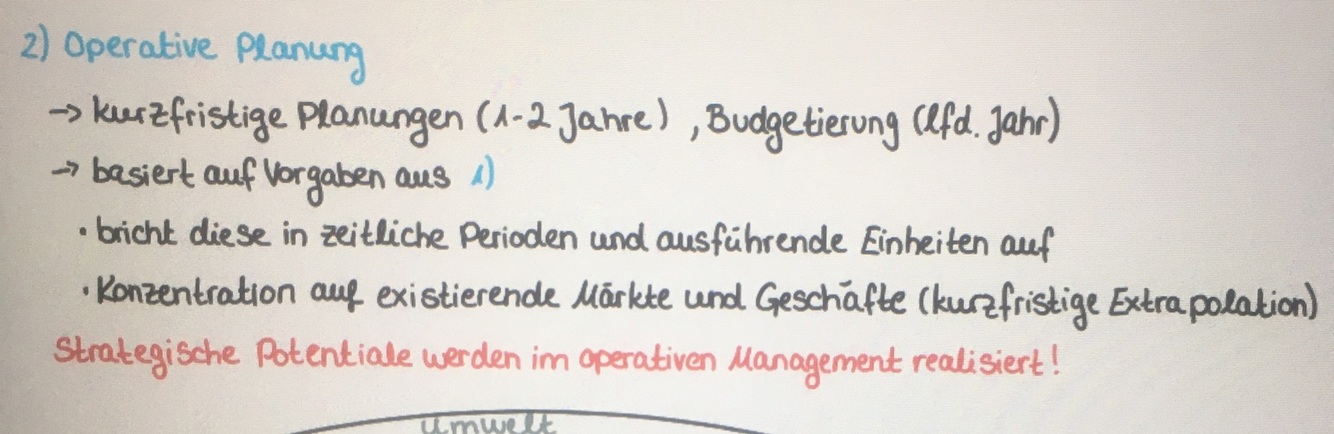 2) Operative Planung
→ kurzfristige Planungen (1-2 Jahre), Budgetierung (lfd. Jahr)
→ basiert auf Vorgaben aus 1)
• bricht diese in zeitliche Perioden und ausführende Einheiten auf
• Konzentration auf existierende Märkte und Geschäfte (kurzfristige Extrapolation)
Strategische Potentiale werden im operativen Management realisiert!
Umwelt